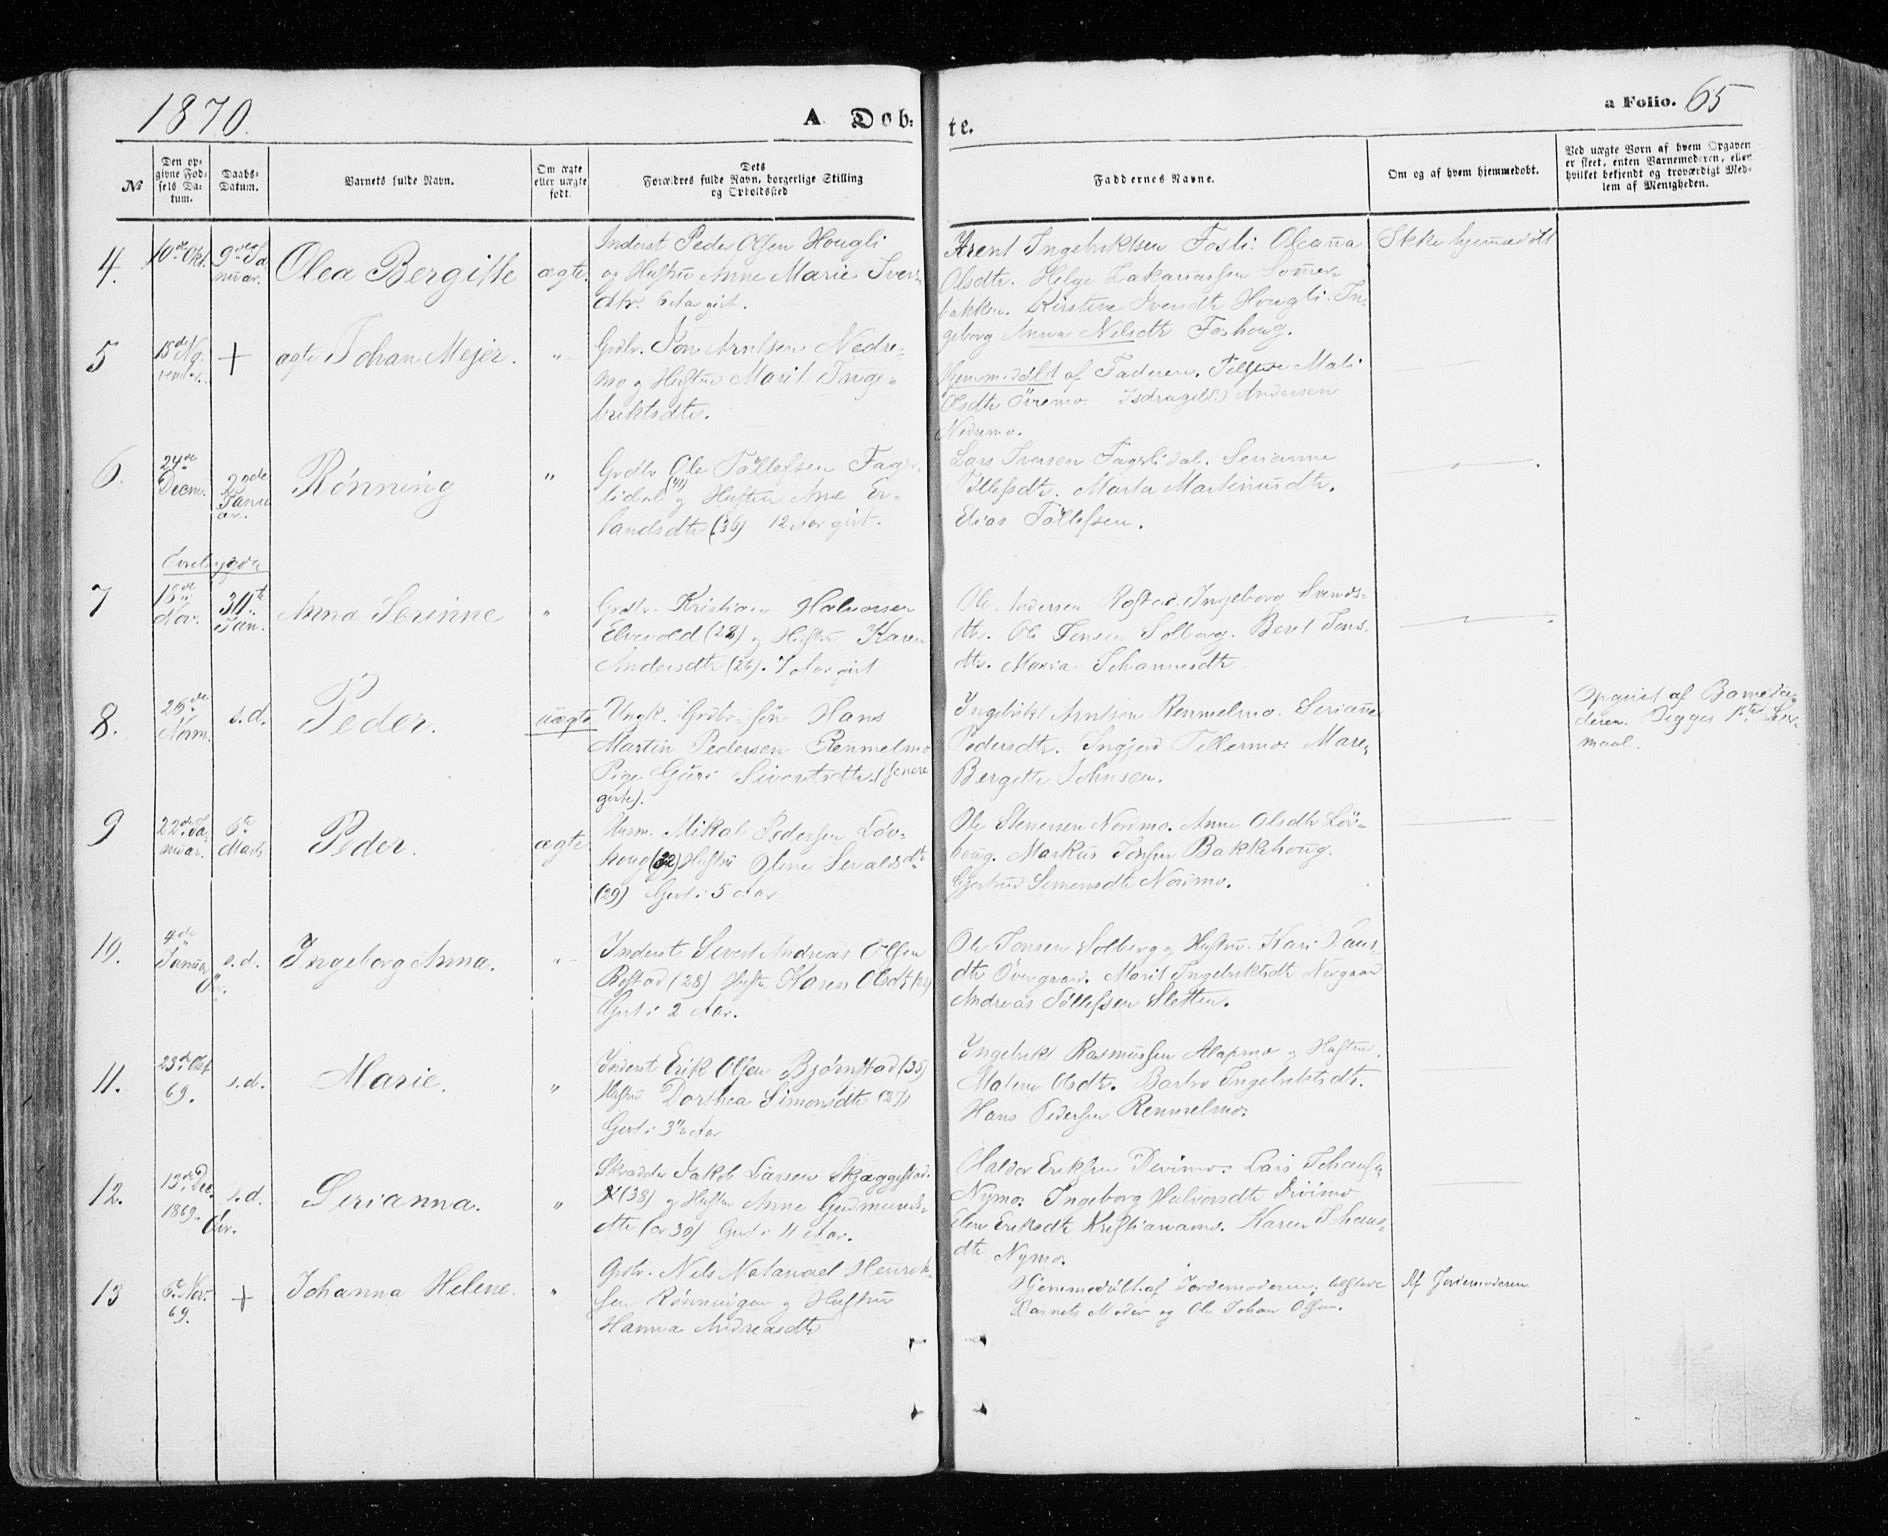 1870.
A Døb:
te.
a Folio. 65
№
Den opgivne Fødsels Datum.
Daabs-Datum.
Barnets fulde Navn.
Om ægte eller uægte født.
Dets Forældres fulde Navn, borgerlige Stilling og Opholdssted
Faddernes Navne.
Om og af hvem hjemmedøbt.
Ved uægte Børn af hvem Opgaven er skeet, enten Barnemoderen, eller hvilket bekjendt og troværdigt Medlem af Menigheden.
4. 10de Okt. 9de Januar. Olea Bergitte ægte
Inderst Peder Olsen Hougli
og Hustru Anne Marie Ivers-
dtr. 6 Aar gift.
Arent Ingebriktsen Fosli. Oleanna
Olsdtr. Helge Zakariassen Sommer-
bakken. Kirstine Iversdtr Hougli. In-
geborg Anna Nilsdtr Foshoug.
Ikke hjemmedøbt
5 15de November + ægte Johan Mejer. "
Grdbr. Jon Arntsen Nedre-
mo og Hustru Marit Inge-
briktsdtr.
Hjemmedøbt af Faderen. Mali
Olsdtr Øvremo. Andersen
Nedremo.
6. 24de Decm. 2den Januar. Rønning "
Grdbr Ole Tollefsen Fager-
lidal (41) og Hustru Ane Er-
landsdtr (36) 12 Aar gift.
Lars Iversen Fagerlidal. Serianne
Tollefsdtr. Marta Martinusdtr.
Elias Tollefsen.
Øverbygden
7 15de Nov. 30te Jan. Anna Serinne "
Grdbr. Kristian Halvorsen
Elvevold (28) og Hustru Karen
Andersdtr (26). 7 Aar gift
Ole Andersen Rostad. Ingeborg Svends-
dtr. Ole Jonsen Solberg. Beret Jons-
dtr. Maria Johannesdtr.
8. 26de Novm. s.d. Peder. uægte
Ungk. Grdbr.søn Hans
Martin Pedersen Renmelmo
Pige Guri Sivertsdtr. (senere
gifte).
Ingebrikt Arntsen Renmelmo. Serianne
Pedersdtr. Ingjerd Tellermo. Mare
Bergitte Johnsen.
Opgivet af Barnefa-
deren. Begges 1ste Leier-
maal.
9 22de Januar. 6te Marts Peder. ægte
Husm. Mikal Pedersen Løv-
houg (32) Hustru Oline Sevalds dtr
(29) Gift i 5 Aar
Ole Stenersen Nordmo. Anne Olsdtr Løv-
houg. Markus Jonsen Bakkehoug.
Gjertrud Simensdtr Nordmo.
10. 4de Januar Øv. s.d. Ingeborg Anna. "
Inderst Sivert Andreas Olsen
Rostad (28) Hustru Karen Olsdtr
Gift i 2 Aar.
Ole Jonsen Solberg og Hustru. Kari Hans-
dtr Øvergaard. Marit Ingebriktsdtr Nergaard
Andreas Tollefsen Sletten.
11. 23de Okt 69. s.d. Marie. "
Inderst Erik Olsen Bjørnstad (35)
Hustru Dorthea Simonsdtr (27)
Gift i 3½ Aar
Ingebrikt Rasmussen Alapmo og Hustru
Malene Olsdtr. Barbro Ingebriktsdtr.
Hans Pedersen Renmelmo.
12. 13de Dec. 1869. Øv. s.d. Serianna. "
Skrædder Jakob Larsen Skjæggestad
(38) og Hustru Anne Gudmunds-
dtr (30) Gift i 11 Aar.
Haldor Eriksen Divimo. Lars Johansen
Nymo. Ingeborg Halvorsdtr Divimo
Elen Eriksdtr Kristianamo. Karen Johans-
dtr Nymo.
13 6te Nov. 69. + Johanna Helene. "
Grdbr. Nils Natanael Henrik-
sen Rønningen og Hustru
Hanna Andreasdtr
Hjemmedøbt af Jordemoderen; tilstede
Barnets Moder og Ole Johan Olsen.
Af Jordemoderen